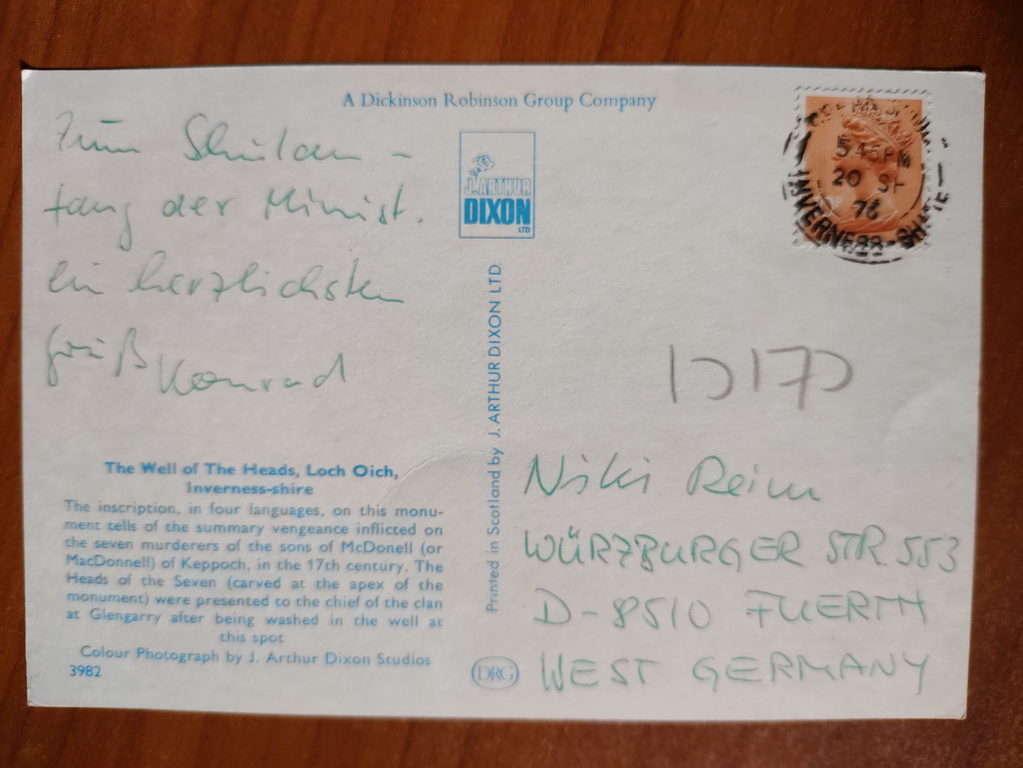 A Dickinson Robinson Group Company
Zum Schulan-
fang der Minist.
ein herzlichsten
Gruß Konrad
J. ARTHUR
DIXON
LTD
5 45 PM
20 SP
76
INVERNESS-SHIRE
Printed in Scotland by J. ARTHUR DIXON LTD.
The Well of The Heads, Loch Oich,
Inverness-shire
The inscription, in four languages, on this monu-
ment tells of the summary vengeance inflicted on
the seven murderers of the sons of McDonell (or
MacDonnell) of Keppoch, in the 17th century. The
Heads of the Seven (carved at the apex of the
monument) were presented to the chief of the clan
at Glengarry after being washed in the well at
this spot
Colour Photograph by J. Arthur Dixon Studios
3982
DRG
Niki Reim
WÜRZBURGER STR. 553
D-8510 FUERTH
WEST GERMANY